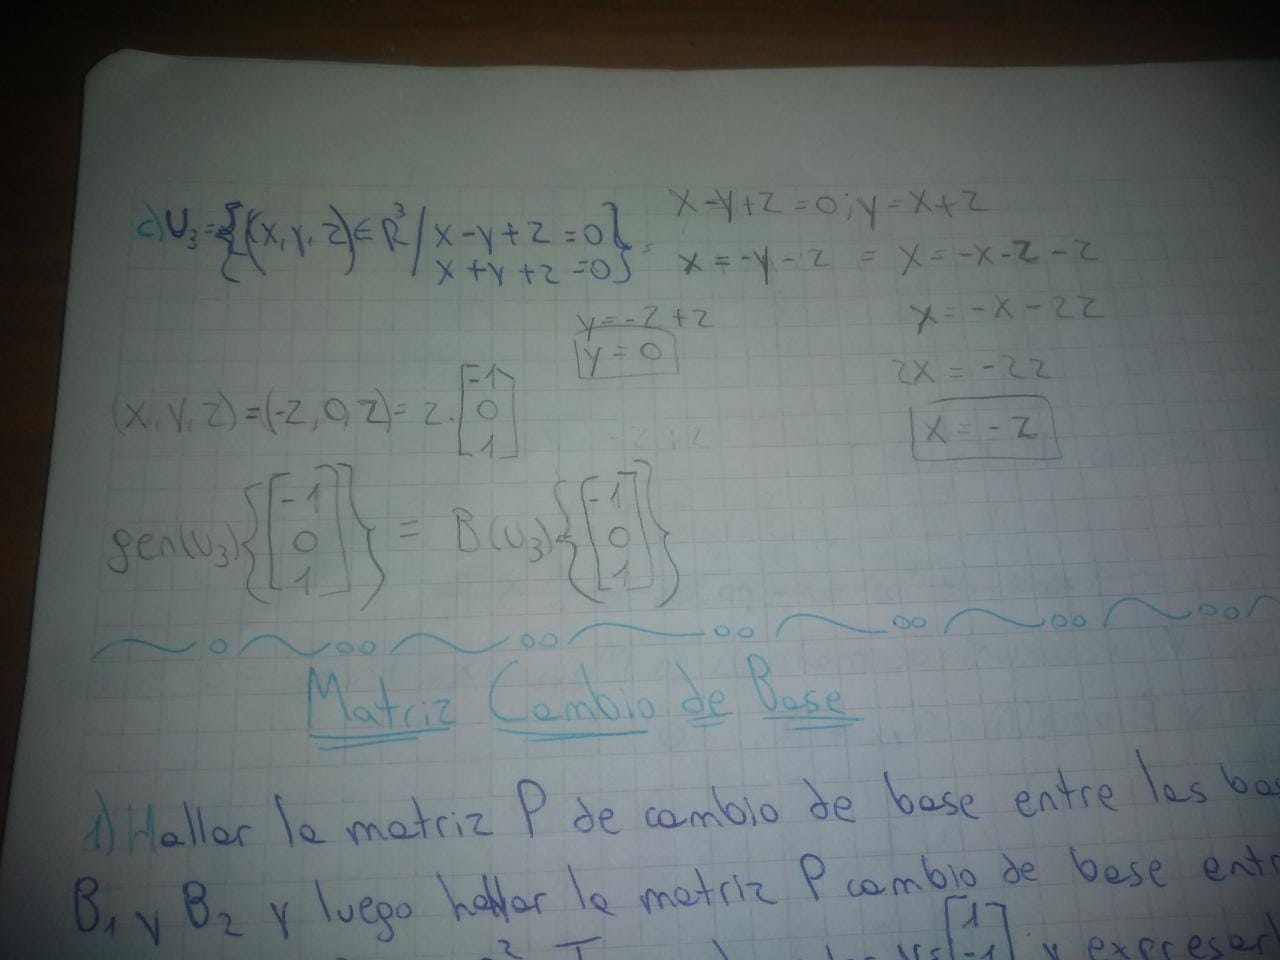 c) U₃={(x,y,z)∈R³/x-y+z=0}= x-y+z=0; y=x+z
x+y+z=0 x=-y-z = x=-x-z-z
y=-z+z x=-x-2z
y=0 2x=-2z
(x,y,z)=(-z,0,z)=z.[-1 0 1] x=-z
gen(U₃){[-1 0 1]} = B(U₃){[-1 0 1]}
Matriz Cambio de Base
1) Hallar la matriz P de cambio de base entre las
B₁ y B₂ y luego hallar la matriz P cambio de base
[1 -1] y